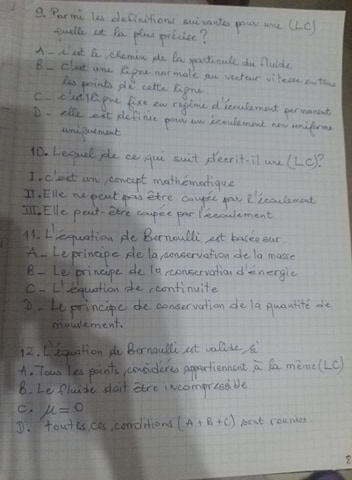 9. Parmi les definitions suivantes pour une (LC)
quelle est la plus précise?
A - c'est le chemin de la particule du fluide
B - c'est une ligne normale au vecteur vitesse en tous
les points de cette ligne
C - c'est ligne fixe en régime d'écoulement permanent
D - elle est définie pour un écoulement non uniforme
uniquement
10. Lequel de ce qui suit décrit-il une (LC)?
I. c'est un concept mathématique
II. Elle ne peut pas être coupée par l'écoulement
III. Elle peut-être coupée par l'écoulement
11. L'équation de Bernoulli est basée sur
A - Le principe de la conservation de la masse
B - Le principe de la conservation d'énergie
C - L'équation de continuité
D - Le principe de conservation de la quantité de
mouvement.
12. L'équation de Bernoulli est valide si
A. Tous les points considérés appartiennent à la même (LC)
B. Le fluide doit être incompressible
C. μ = 0
D. toutes ces conditions (A + B + C) sont réunies
8